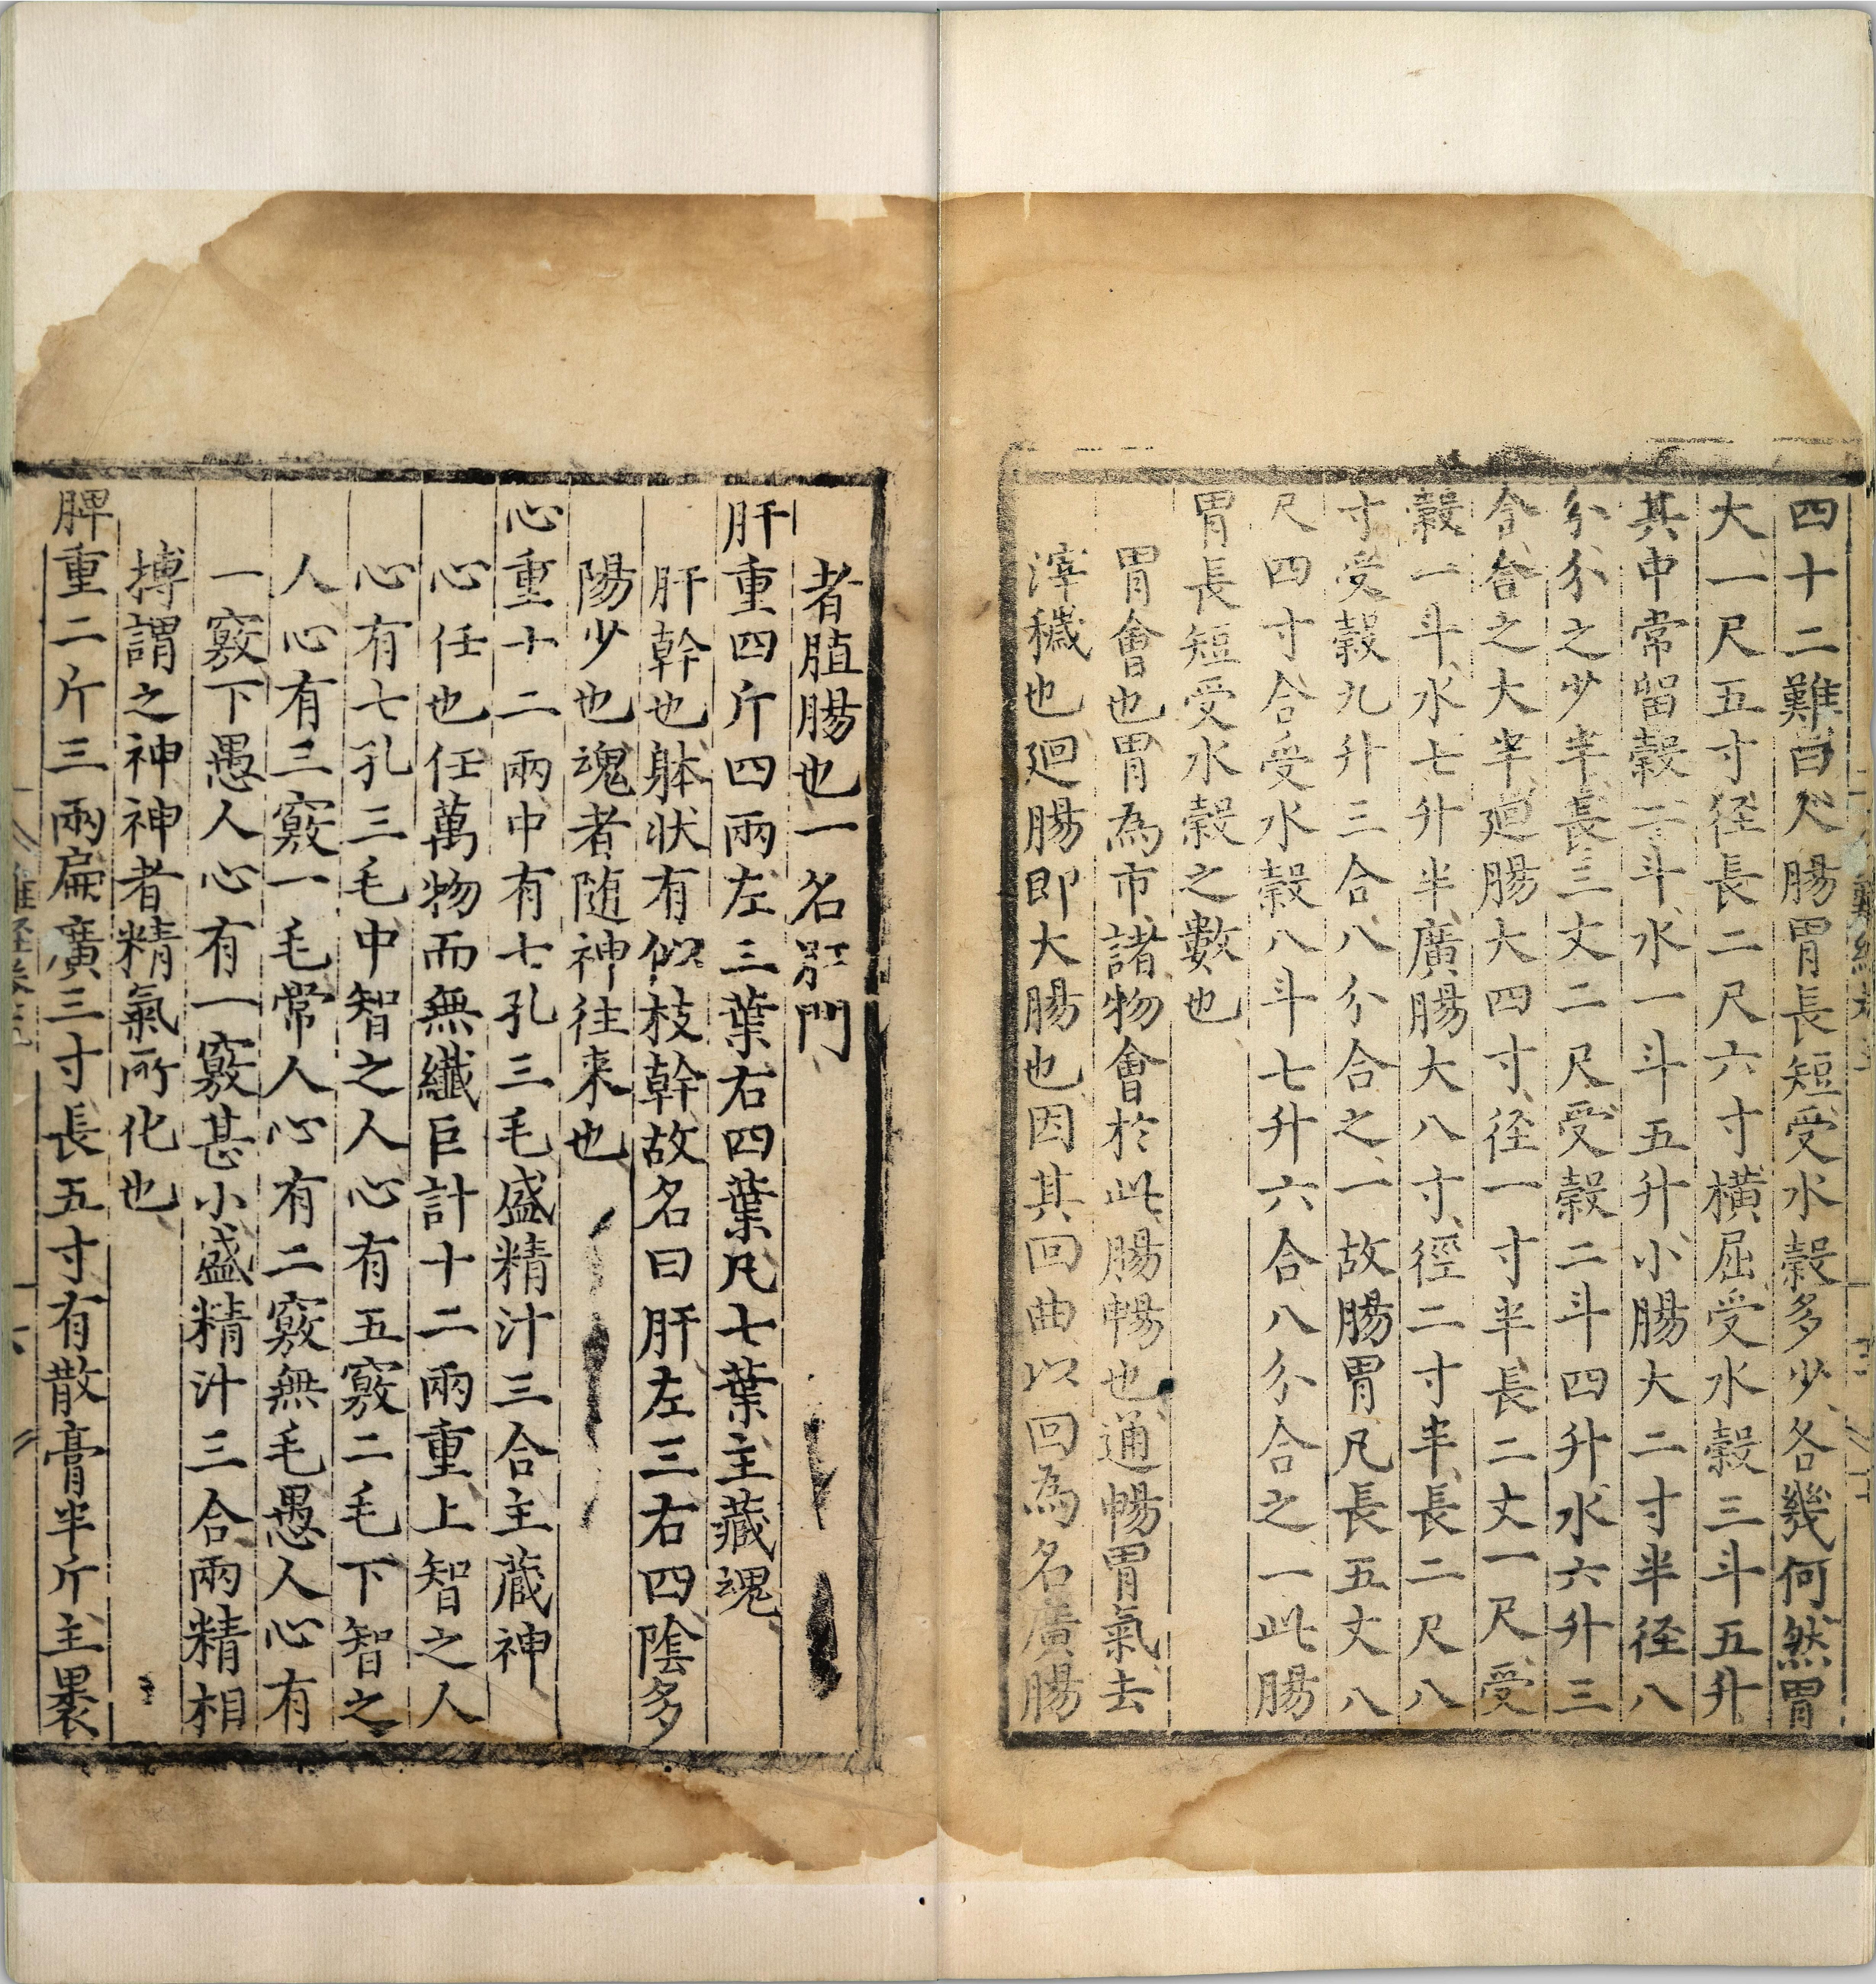 四十二難曰人腸胃長短受水穀多少各幾何然胃
大一尺五寸径長二尺六寸橫屈受水穀三斗五升
其中常留穀二斗水一斗五升小腸大二寸半径八
分分之少半長三丈二尺受穀二斗四升水六升三
合合之大半廻腸大四寸径一寸半長二丈一尺受
穀一斗水七升半廣腸大八寸徑二寸半長二尺八
寸受穀九升三合八分合之一故腸胃凡長五丈八
尺四寸合受水穀八斗七升六合八分合之一此腸
胃長短受水穀之數也
胃會也胃為市諸物會於此腸暢也通暢胃氣去
滓穢也廻腸即大腸也因其回曲以回為名廣腸
者䐈腸也一名肛門
肝重四斤四兩左三葉右四葉凡七葉主藏魂
肝幹也躰状有似枝幹故名曰肝左三右四陰多
陽少也魂者随神往来也
心重十二兩中有七孔三毛盛精汁三合主蔵神
心任也任萬物而無纖巨計十二兩重上智之人
心有七孔三毛中智之人心有五竅二毛下智之
人心有三竅一毛常人心有二竅無毛愚人心有
一竅下愚人心有一竅甚小盛精汁三合兩精相
搏謂之神神者精氣所化也
脾重二斤三兩扁廣三寸長五寸有散膏半斤主褁